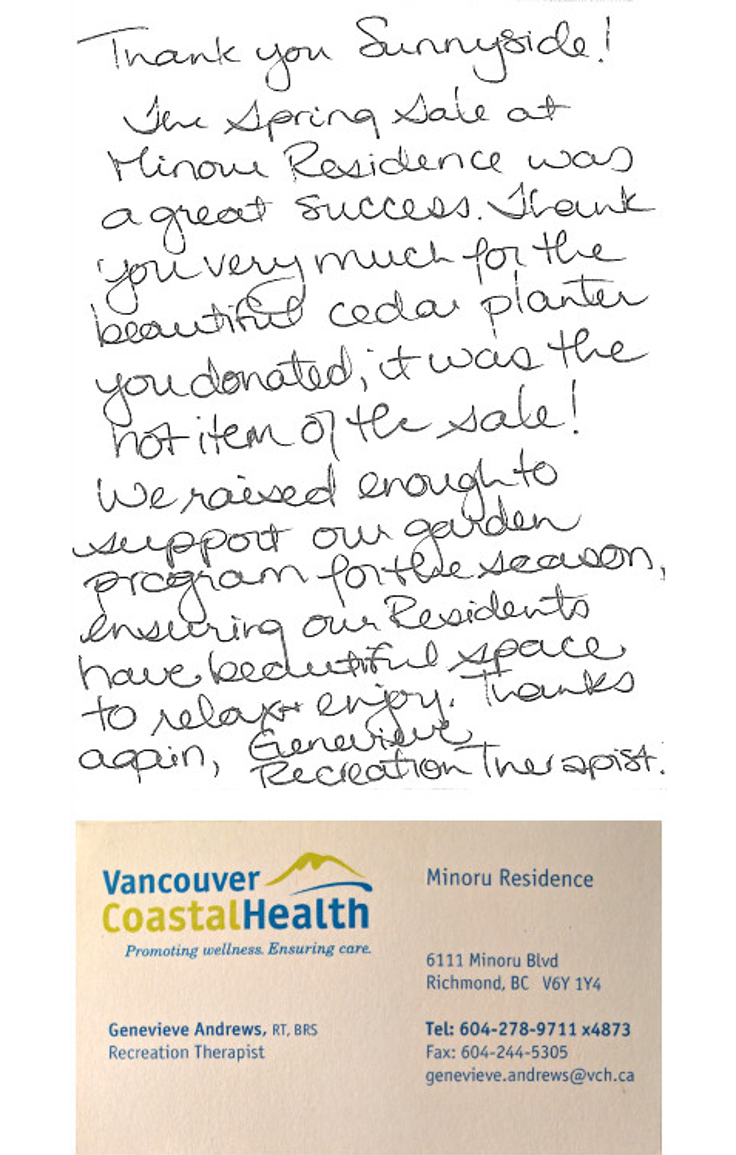 Thank you Sunnyside!
The Spring Sale at
Minoru Residence was
a great success. Thank
you very much for the
beautiful cedar planter
you donated; it was the
hot item of the sale!
We raised enough to
support our garden
program for the season,
ensuring our Residents
have beautiful space
to relax + enjoy. Thanks
again, Genevieve
Recreation Therapist.
Vancouver
CoastalHealth
Promoting wellness. Ensuring care.
Genevieve Andrews, RT, BRS
Recreation Therapist
Minoru Residence
6111 Minoru Blvd
Richmond, BC V6Y 1Y4
Tel: 604-278-9711 x4873
Fax: 604-244-5305
genevieve.andrews@vch.ca